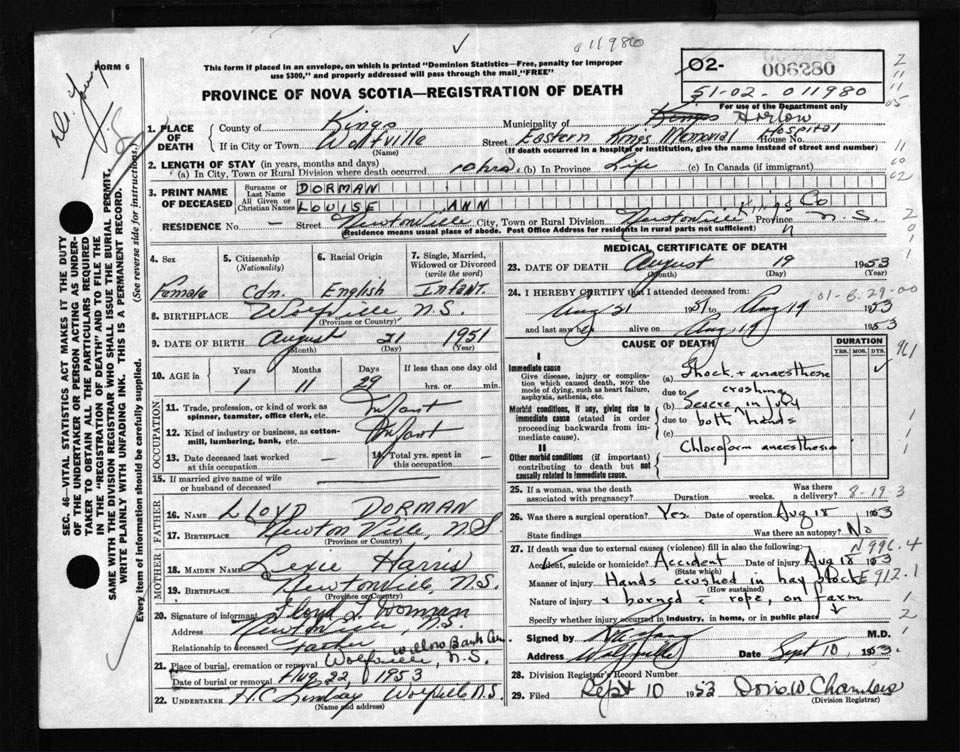 011980
FORM 6
This form if placed in an envelope, on which is printed "Dominion Statistics—Free, penalty for improper
use $300," and properly addressed will pass through the mail, "FREE"
PROVINCE OF NOVA SCOTIA—REGISTRATION OF DEATH
02- 006280
51-02-011980
For use of the Department only
1. PLACE OF DEATH
County of Kings
Municipality of Kings Horton
If in City or Town Wolfville
(Name)
Street Eastern Kings Memorial Hospital House No.
(If death occurred in a hospital or institution, give the name instead of street and number)
2. LENGTH OF STAY (in years, months and days)
(a) In City, Town or Rural Division where death occurred 10 hrs. (b) In Province Life (c) In Canada (if immigrant)
3. PRINT NAME OF DECEASED
Surname or Last Name DORMAN
All Given or Christian Names LOUISE ANN
RESIDENCE No. — Street Newtonville City, Town or Rural Division Newtonville Kings Co Province N.S.
(Residence means usual place of abode. Post Office Address for residents in rural parts not sufficient)
4. Sex
Female
5. Citizenship (Nationality)
Cdn.
6. Racial Origin
English
7. Single, Married, Widowed or Divorced (write the word)
Infant.
8. BIRTHPLACE Wolfville N.S.
(Province or Country)
9. DATE OF BIRTH August 21 1951
(Month) (Day) (Year)
10. AGE in
Years Months Days If less than one day old
1 11 29 hrs. or min.
11. Trade, profession, or kind of work as spinner, teamster, office clerk, etc. Infant
12. Kind of industry or business, as cotton-mill, lumbering, bank, etc. Infant
13. Date deceased last worked at this occupation —
14. Total yrs. spent in this occupation —
15. If married give name of wife or husband of deceased —
OCCUPATION
FATHER
16. NAME LLOYD DORMAN
17. BIRTHPLACE Newton Ville, N.S
(Province or Country)
MOTHER
18. MAIDEN NAME Lexie Harris
19. BIRTHPLACE Newtonville, N.S.
(PROVINCE OR COUNTRY)
20. Signature of informant Lloyd L Dorman
Address Newtonville, N.S.
Relationship to deceased Father
21. Place of burial, cremation or removal Willow Bank Cem. Wolfville, N.S.
Date of burial or removal Aug 22, 1953
22. UNDERTAKER H.C. Lindsay Wolfville N.S.
(Name and address)
MEDICAL CERTIFICATE OF DEATH
23. DATE OF DEATH August 19 1953
(Month) (Day) (Year)
24. I HEREBY CERTIFY that I attended deceased from:
Aug 21 1951 to Aug 19 1953
01-8.29-00
and last saw her alive on Aug 19 1953
CAUSE OF DEATH
DURATION
YRS. MOS. DYS.
I
Immediate cause
Give disease, injury or complication which caused death, NOT the mode of dying, such as heart failure, asphyxia, asthenia, etc.
(a) Shock + anaesthesia
due to crushing
Morbid conditions, if any, giving rise to immediate cause (stated in order proceeding backwards from immediate cause).
(b) Severe injury
due to both hands
(c)
II
Other morbid conditions (if important) contributing to death but not causally related to immediate cause.
Chloroform anaesthesia
25. If a woman, was the death associated with pregnancy? Duration weeks. Was there a delivery? 8-19 3
26. Was there a surgical operation? Yes. Date of operation Aug 18 1953
State findings Was there an autopsy? No
27. If death was due to external causes (violence) fill in also the following: N 996.4
Accident, suicide or homicide? Accident Date of injury Aug 18 1953
(State which)
Manner of injury Hands crushed in hay block E912.1
(How sustained)
Nature of injury + burned c rope, on farm
Specify whether injury occurred in industry, in home, or in public place
Signed by M.D.
Address Wolfville Date Sept 10, 1953.
28. Division Registrar's Record No.
29. Filed Sept 10 1953 Doris W Chambers
(Division Registrar)
SEC. 46—VITAL STATISTICS ACT MAKES IT THE DUTY
OF THE UNDERTAKER OR PERSON ACTING AS UNDER-
TAKER TO OBTAIN ALL THE PARTICULARS REQUIRED
IN THE "REGISTRATION OF DEATH" AND TO FILE THE
SAME WITH THE DIVISION REGISTRAR WHO SHALL ISSUE THE BURIAL PERMIT.
WRITE PLAINLY WITH UNFADING INK. THIS IS A PERMANENT RECORD.
Every item of information should be carefully supplied. (See reverse side for instructions.)